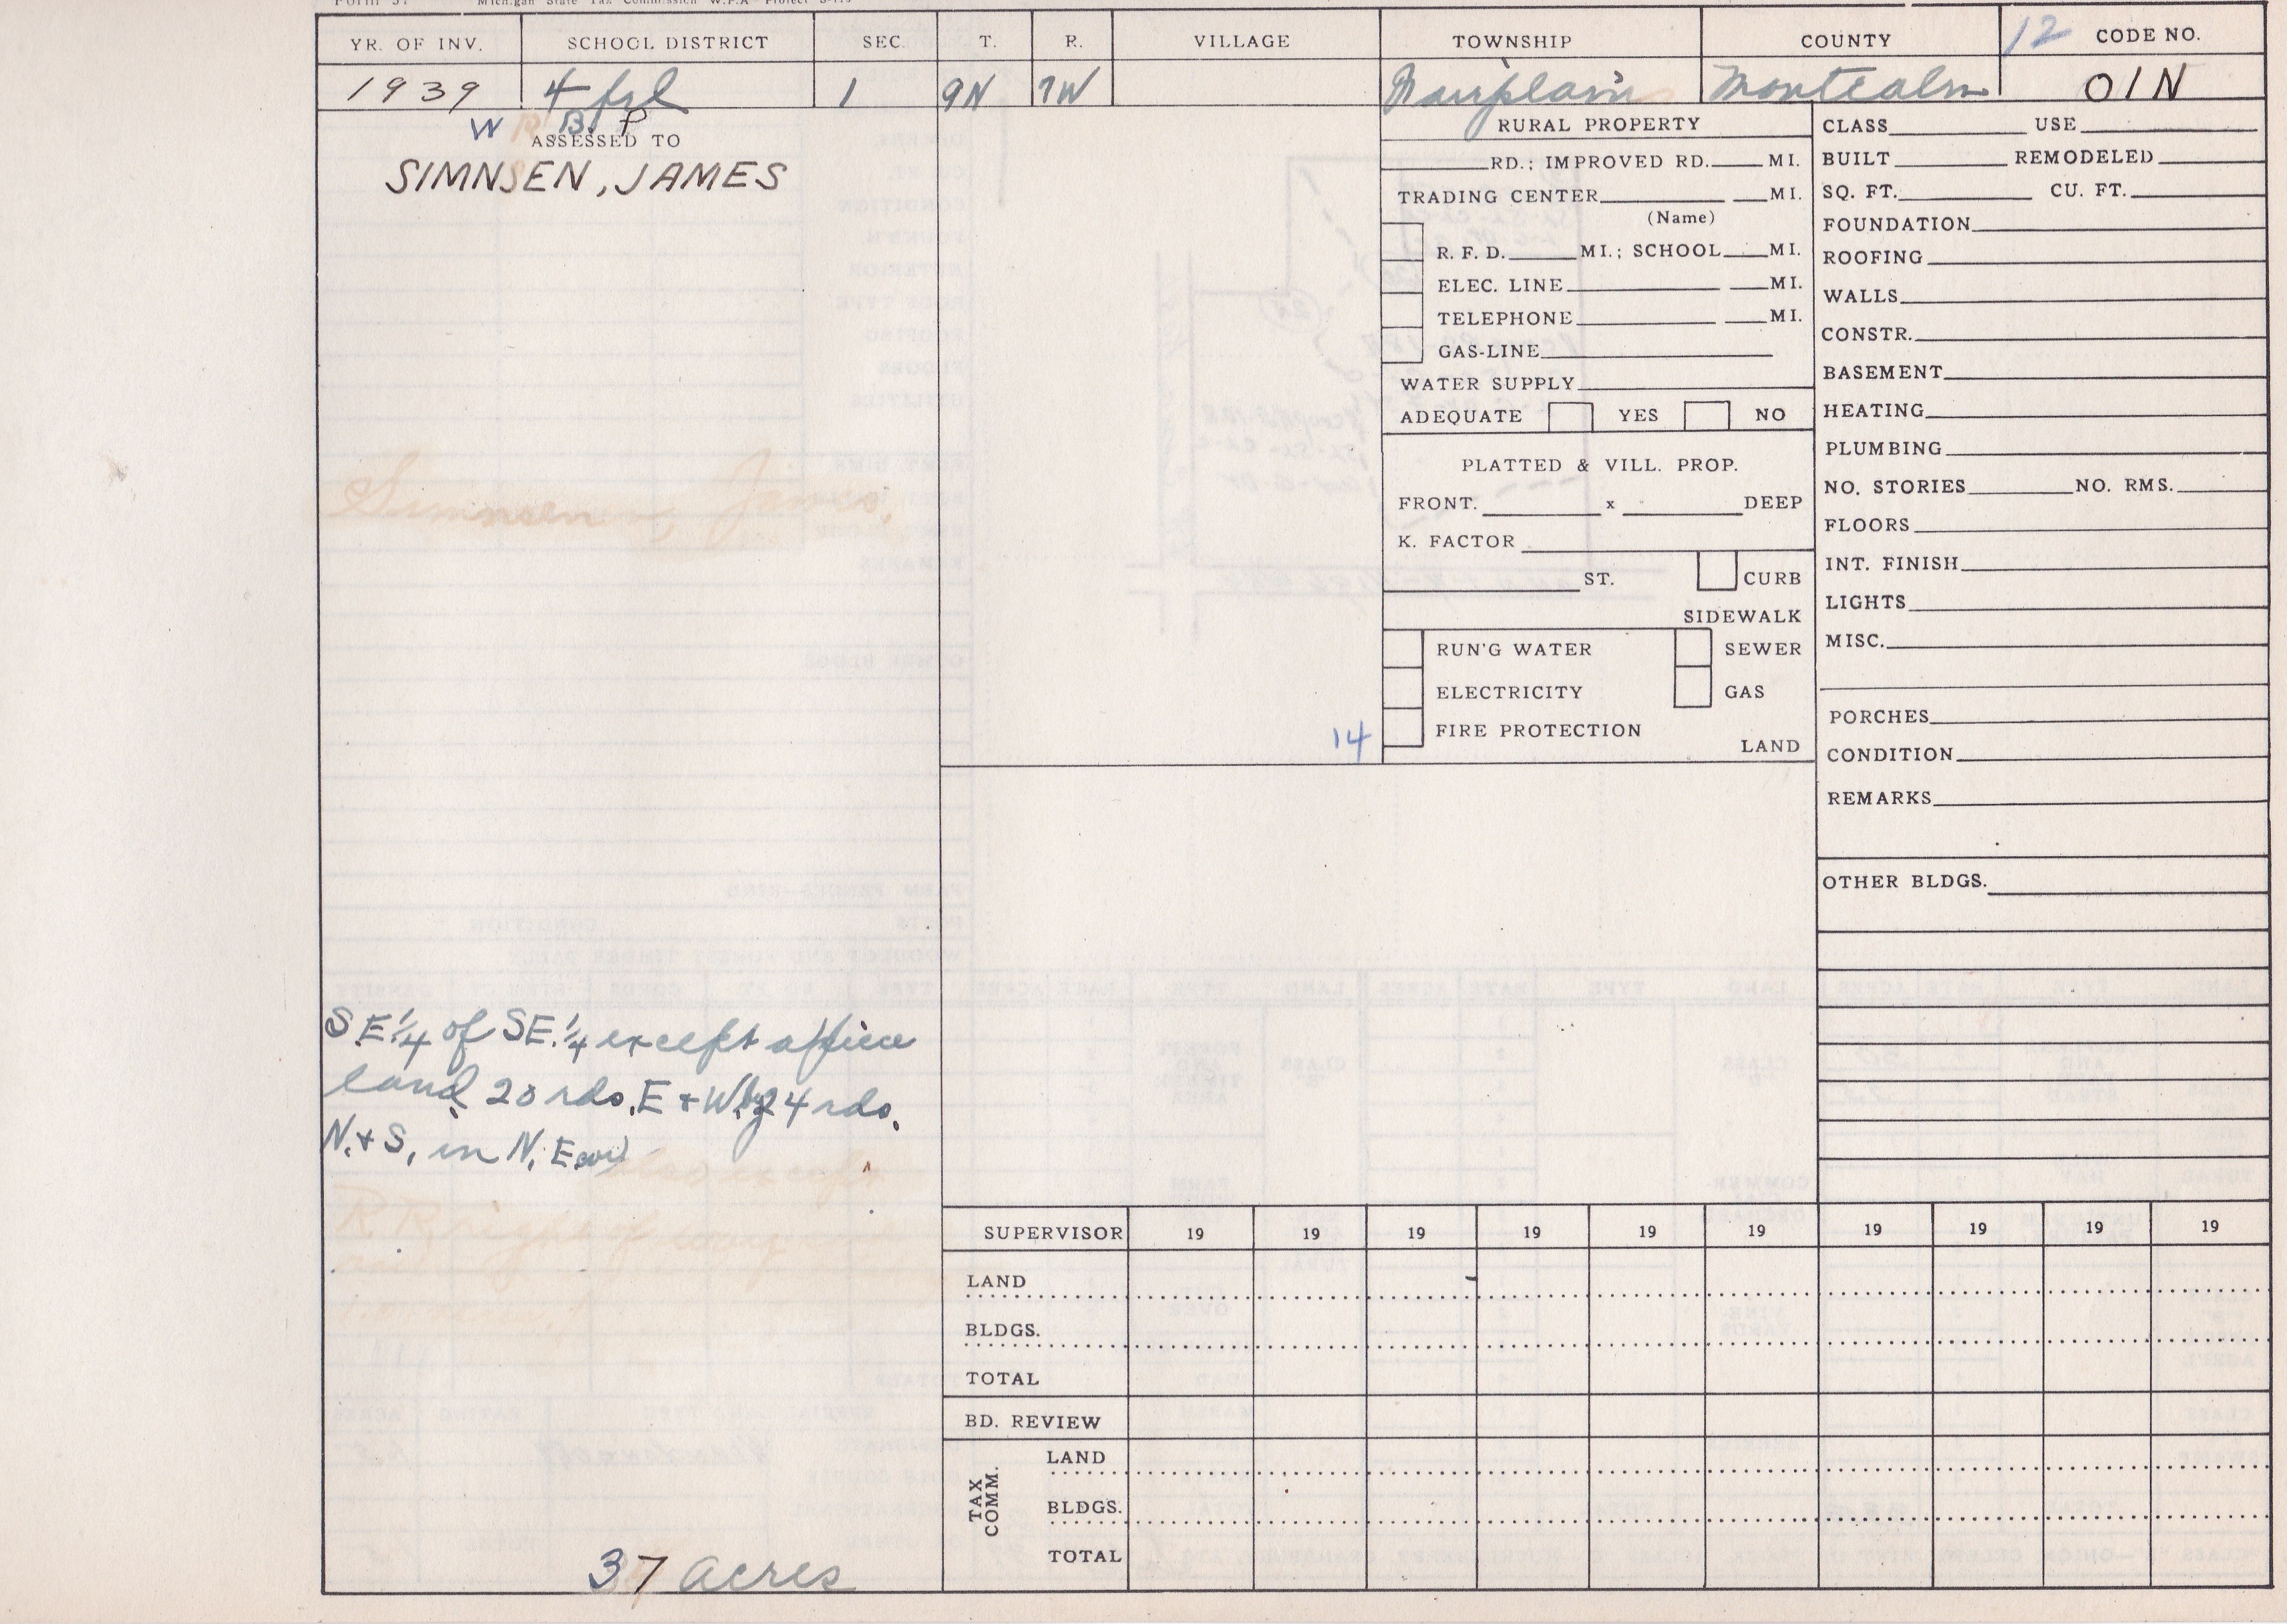 Michigan State Tax Commission W.P.A. Project
YR. OF INV. SCHOOL DISTRICT SEC. T. R. VILLAGE TOWNSHIP COUNTY 12 CODE NO.
1939 4 frl 1 9N 7W Fairplain Montcalm 01N
W R B. P
ASSESSED TO
SIMNSEN, JAMES
Simnsen, James.
SE.¼ of SE.¼ except a piece
land 20 rds. E & W. by 24 rds.
N. & S. in N. E cor
also except
R R right of way
37 acres
14
RURAL PROPERTY
RD.; IMPROVED RD. MI.
TRADING CENTER MI.
(Name)
R. F. D. MI.; SCHOOL MI.
ELEC. LINE MI.
TELEPHONE MI.
GAS-LINE
WATER SUPPLY
ADEQUATE YES NO
PLATTED & VILL. PROP.
FRONT. x DEEP
K. FACTOR
ST. CURB
SIDEWALK
RUN'G WATER SEWER
ELECTRICITY GAS
FIRE PROTECTION
LAND
CLASS USE
BUILT REMODELED
SQ. FT. CU. FT.
FOUNDATION
ROOFING
WALLS
CONSTR.
BASEMENT
HEATING
PLUMBING
NO. STORIES NO. RMS.
FLOORS
INT. FINISH
LIGHTS
MISC.
PORCHES
CONDITION
REMARKS
OTHER BLDGS.
SUPERVISOR 19 19 19 19 19 19 19 19 19 19
LAND
BLDGS.
TOTAL
BD. REVIEW
TAX COMM.
LAND
BLDGS.
TOTAL